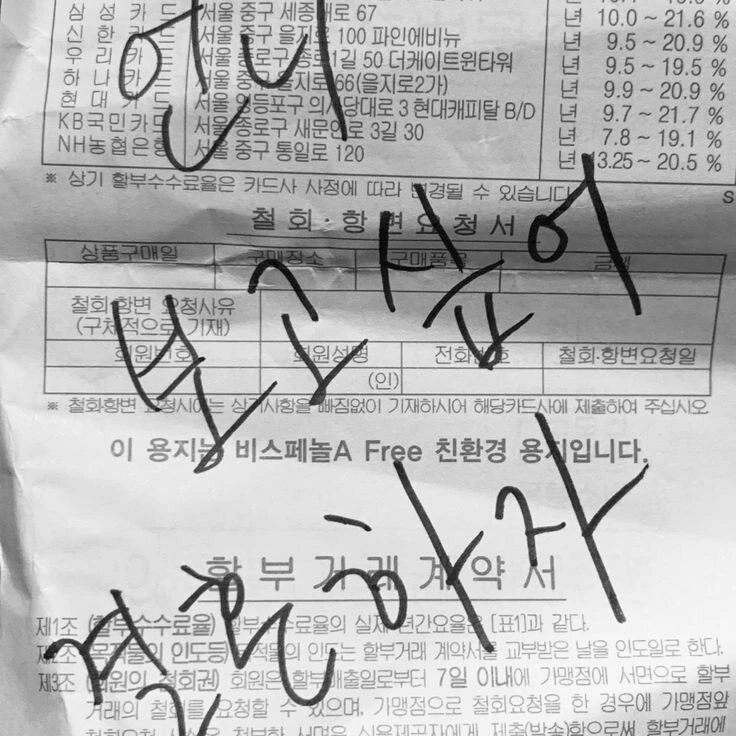 삼 성 카 드 서울 중구 세종대로 67 년 10.0 ~ 21.6 %
신 한 카 드 서울 중구 을지로 100 파인에비뉴 년 9.5 ~ 20.9 %
우 리 카 드 서울 종로구 종로1길 50 더케이트윈타워 년 9.5 ~ 19.5 %
하 나 카 드 서울 중구 을지로 66(을지로2가) 년 9.9 ~ 20.9 %
현 대 카 드 서울 영등포구 의사당대로 3 현대캐피탈 B/D 년 9.7 ~ 21.7 %
KB국민카드 서울 종로구 새문안로 3길 30 년 7.8 ~ 19.1 %
NH농협은행 서울 중구 통일로 120 년 13.25 ~ 20.5 %
언니
※ 상기 할부수수료율은 카드사 사정에 따라 변경될 수 있습니다.
철회·항변요청서
상품구매일 구매장소 구매품목 금액
보고싶어
철회·항변 요청사유
(구체적으로 기재)
회원번호 회원성명 전화번호 철회·항변요청일
(인)
※ 철회항변 요청시에는 상기사항을 빠짐없이 기재하시어 해당카드사에 제출하여 주십시오.
이 용지는 비스페놀A Free 친환경 용지입니다.
할부거래계약서
전화하자
제1조 (할부수수료율) 할부수수료율의 실제 년간요율은 [표1]과 같다.
제2조 (목적물의 인도등) 목적물의 인도는 할부거래 계약서를 교부받은 날을 인도일로 한다.
제3조 (회원의 철회권) 회원은 할부매출일로부터 7일 이내에 가맹점에 서면으로 할부
거래의 철회를 요청할 수 있으며, 가맹점으로 철회요청을 한 경우에 가맹점앞